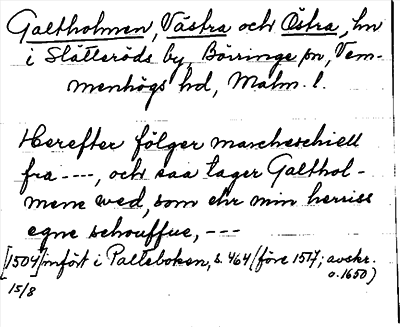 Galtholmen, Västra och Östra, hn
i Slätteröds by, Börringe sn, Vem-
menhögs hd, Malm. l.
Herefter følger marcheschiell
fra ---, och saa tager Galthol-
mene wed, som ehr min herriss
egne schouffue, ---
[1504] infört i Palteboken, s. 464 (före 1517; avskr.
o. 1650)
15/8